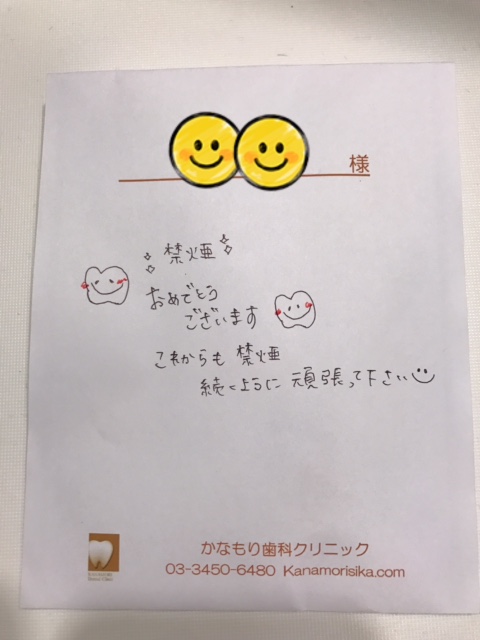 様
禁煙
おめでとう
ございます
これからも 禁煙
続くように 頑張って下さい
かなもり歯科クリニック
03-3450-6480 Kanamorisika.com